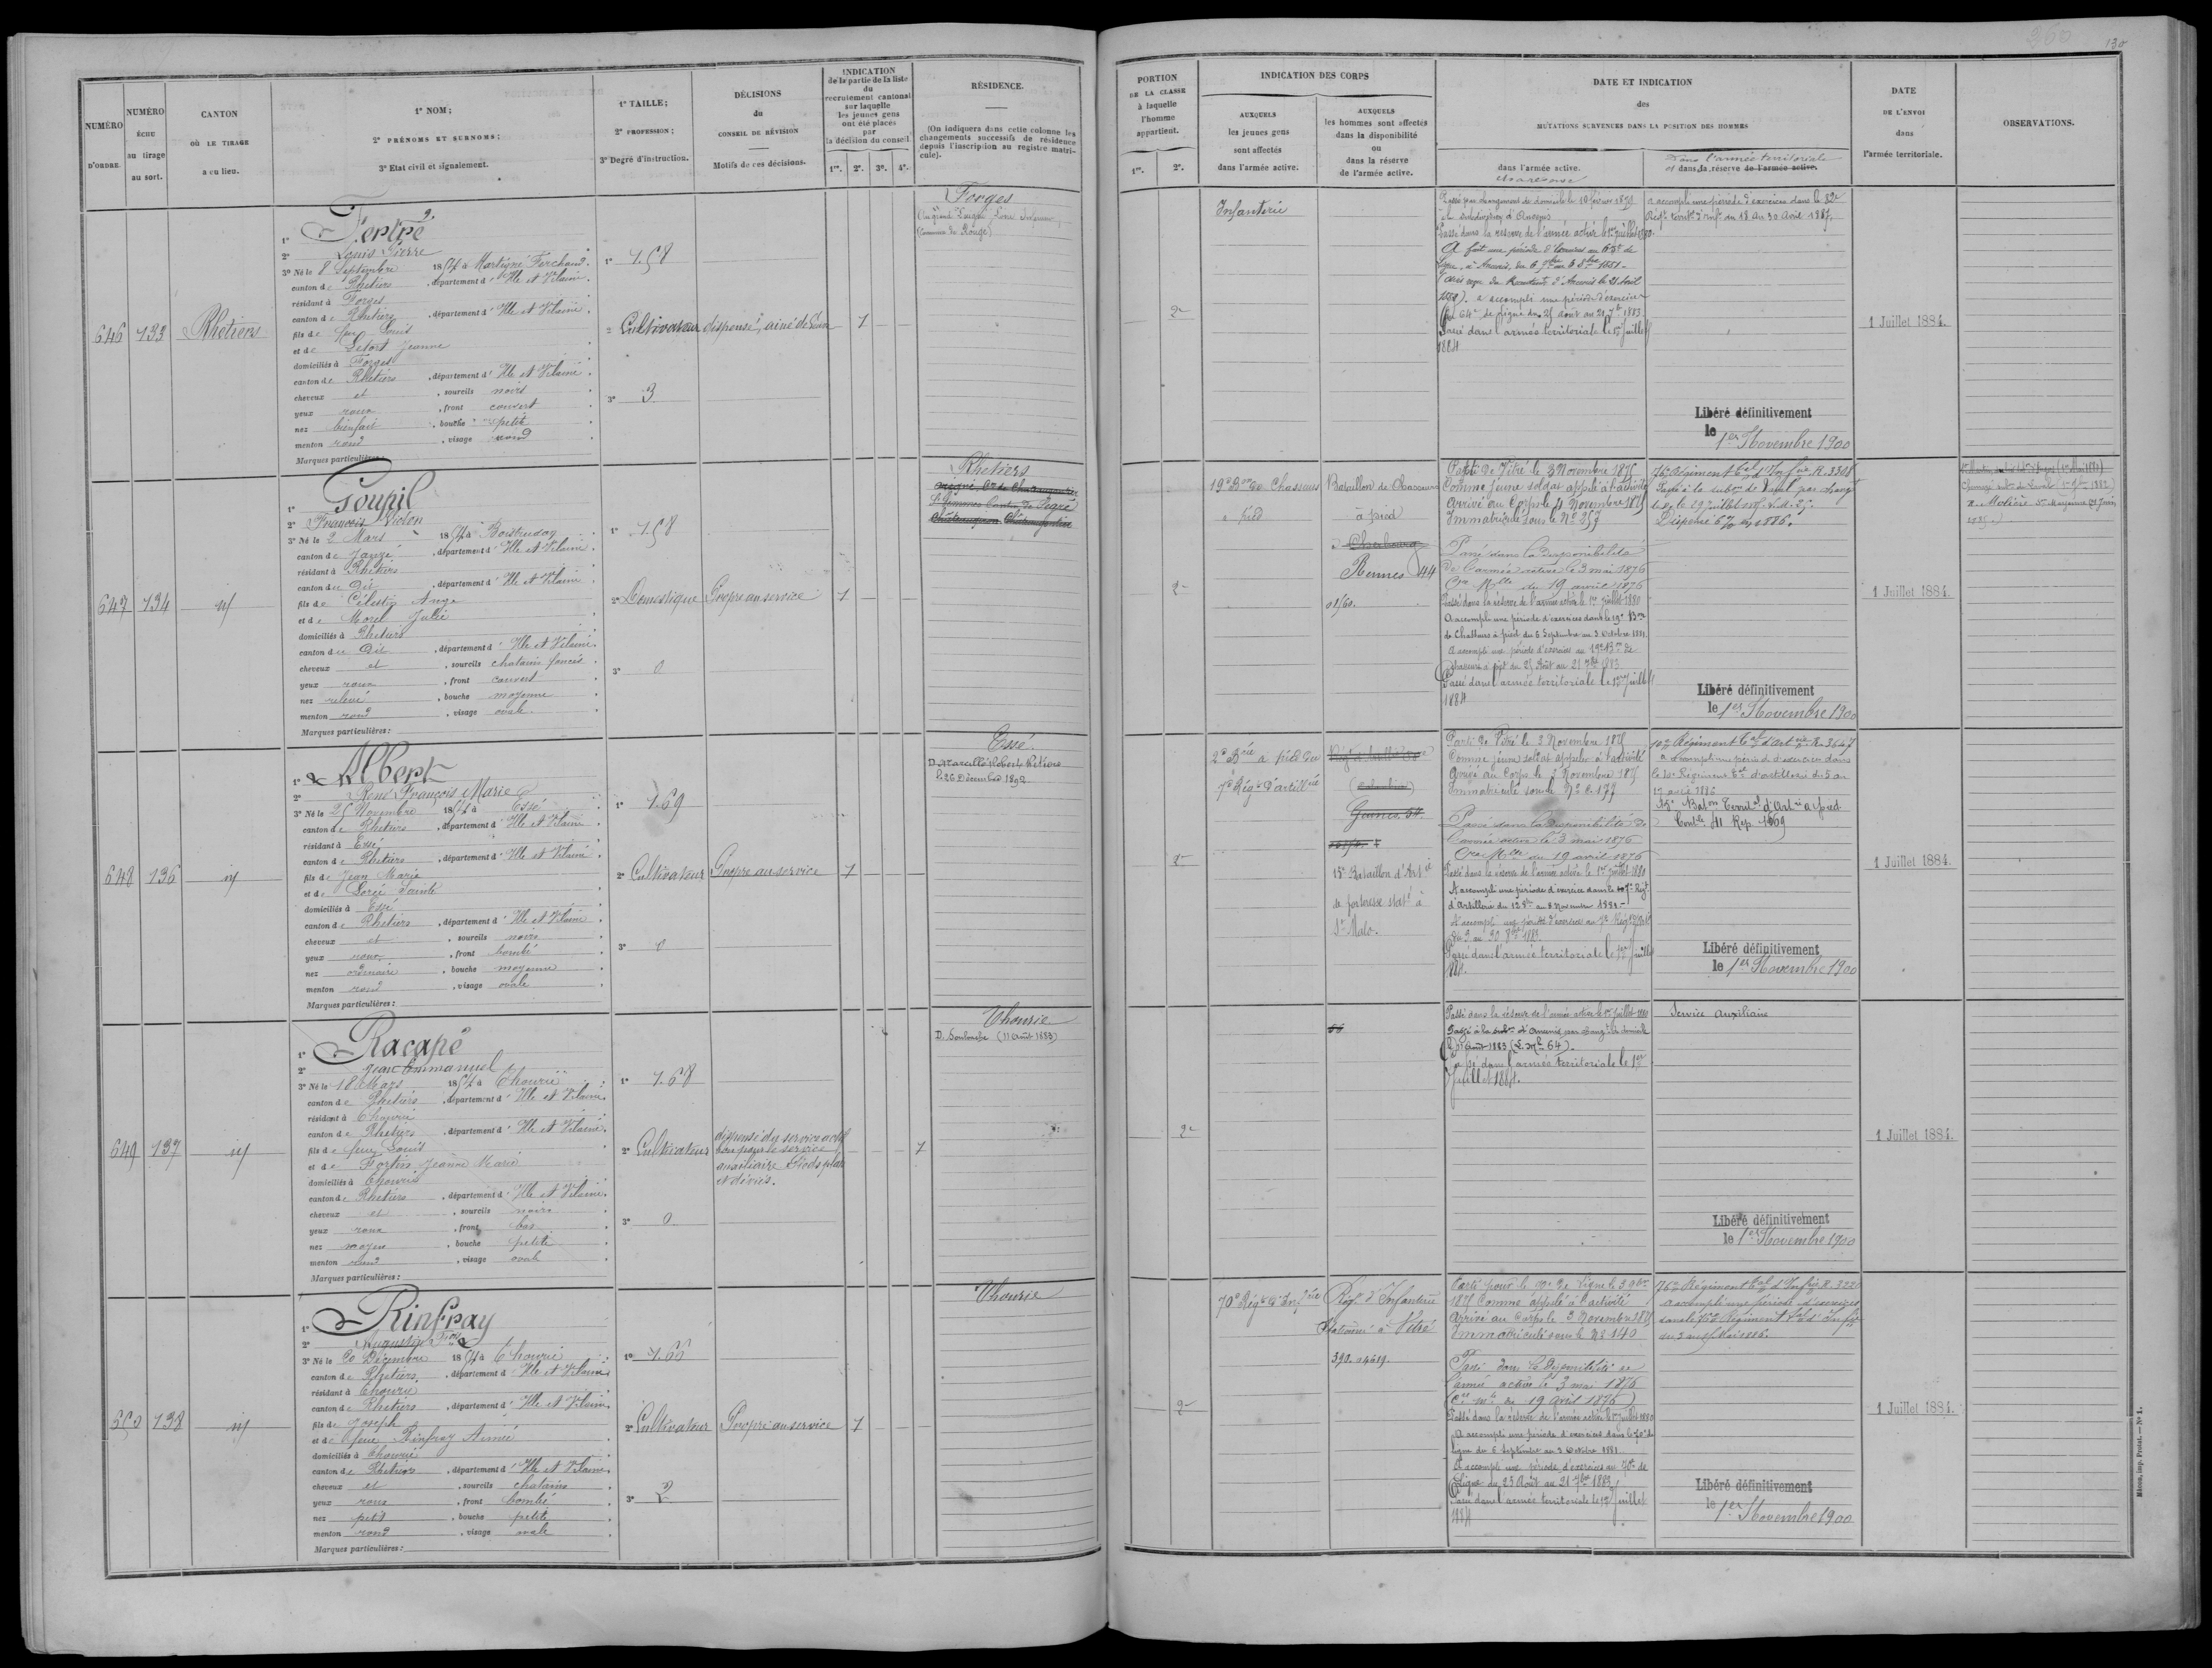 130
NUMÉRO D'ORDRE.
NUMÉRO ÉCHU au tirage au sort.
CANTON OÙ LE TIRAGE a eu lieu.
1° NOM;
2° PRÉNOMS ET SURNOMS;
3° Etat civil et signalement.
1° TAILLE;
2° PROFESSION;
3° Degré d'instruction.
DÉCISIONS
du
CONSEIL DE RÉVISION
Motifs de ces décisions.
INDICATION
de la partie de la liste
du
recrutement cantonal
sur laquelle
les jeunes gens
ont été placés
par
la décision du conseil
1re. 2e. 3e. 4e.
RÉSIDENCE.
(On indiquera dans cette colonne les
changements successifs de résidence
depuis l'inscription au registre matri-
cule).
PORTION
DE LA CLASSE
à laquelle
l'homme
appartient.
1re. 2e.
INDICATION DES CORPS
AUXQUELS
les jeunes gens
sont affectés
dans l'armée active.
AUXQUELS
les hommes sont affectés
dans la disponibilité
ou
dans la réserve
de l'armée active.
DATE ET INDICATION
des
MUTATIONS SURVENUES DANS LA POSITION DES HOMMES
dans l'armée active.
et sa réserve
Dans l'armée territoriale
et dans la réserve de l'armée active.
DATE
DE L'ENVOI
dans
l'armée territoriale.
OBSERVATIONS.
646
133
Rhetiers
1° Tertre
2° Louis Pierre
3° Né le 8 Septembre 1854 à Martigné Ferchaud.
canton de Rhetiers, département d'Ille et Vilaine.
résidant à Forges
canton de Rhetiers, département d'Ille et Vilaine.
fils de feu Louis
et de Letort Jeanne
domiciliés à Forges
canton de Rhetiers, département d'Ille et Vilaine.
cheveux et, sourcils noirs
yeux roux, front couvert
nez bienfait, bouche petite
menton rond, visage rond
Marques particulières:
1° 1.58
2° Cultivateur
3° 3
dispensé, ainé de veuve
1
Forges
2e
Infanterie
Passé par changement de domicile le 10 février 1879
à la subdivision d'Ancenis
Passé dans la réserve de l'armée active le 1er juillet 1880.
Passé dans l'armée territoriale le 1er Juillet
1884
a accompli une période d'exercices dans le 82e
Régt territl d'Inf du 18 au 30 Avril 1887.
Libéré définitivement
le 1er Novembre 1900
1 Juillet 1884.
647
134
id
1° Goupil
2° François Victor
3° Né le 2 Mars 1854 à Boistrudan
canton de Janzé, département d'Ille et Vilaine.
résidant à Rhetiers
canton du dit, département d'Ille et Vilaine.
fils de Célestin Ange
et de Morel Julie
domiciliés à Rhetiers
canton du dit, département d'Ille et Vilaine.
cheveux et, sourcils chatains foncés
yeux roux, front couvert
nez relevé, bouche moyenne
menton rond, visage ovale
Marques particulières:
1° 1.58
2° Domestique
3° 0
Propre au service
1
Rhetiers
2e
19e Bon de Chasseurs
à pied
Bataillon de Chasseurs
à pied
à Cherbourg
Rennes 44
Parti de Vitré le 3 Novembre 1875
Comme jeune soldat appelé à l'activité
Arrivé au Corps le 4 Novembre 1875
Immatriculé sous le No 357
Passé dans la disponibilité
de l'armée active le 3 mai 1876
Cre Mlle du 19 avril 1876
Passé dans la réserve de l'armée active le 1er juillet 1880
A accompli une période d'exercices dans le 19e Bon
de Chasseurs à pied du 6 Septembre au 3 Octobre 1881.
A accompli une période d'exercices au 19e Bon de
chasseurs à pied du 25 Août au 21 7bre 1883
Passé dans l'armée territoriale le 1er Juillet
1884
Libéré définitivement
le 1er Novembre 1900
1 Juillet 1884.
648
136
id
1° Albert
2° René François Marie
3° Né le 25 Novembre 1854 à Essé
canton de Rhetiers, département d'Ille et Vilaine.
résidant à Essé
canton de Rhetiers, département d'Ille et Vilaine.
fils de Jean Marie
et de Sorée Sainte
domiciliés à Essé
canton de Rhetiers, département d'Ille et Vilaine.
cheveux et, sourcils noirs
yeux roux, front bombé
nez ordinaire, bouche moyenne
menton rond, visage ovale
Marques particulières:
1° 1.69
2° Cultivateur
3° 0
Propre au service
1
Essé.
D. Marcillé Robert Retiers
le 26 Décembre 1892
2e
2e Bie à pied du
7e Régt d'artillrie
15e Bataillon d'Artie
de forteresse statné à
St Malo.
Parti de Vitré le 3 Novembre 1875
Comme jeune soldat appelé à l'activité
Arrivé au Corps le 5 Novembre 1875
Immatriculé sous le No C. 177
Passé dans la disponibilité de
l'armée active le 3 mai 1876
Cre Mlle du 19 avril 1876
Passé dans la réserve de l'armée active le 1er juillet 1880
Passé dans l'armée territoriale le 1er Juillet
1884.
10e Régiment tal d'Artie R. 3647
Libéré définitivement
le 1er Novembre 1900
1 Juillet 1884.
649
137
id
1° Racapé
2° Jean Emmanuel
3° Né le 18 Mars 1854 à Thourie
canton de Rhetiers, département d'Ille et Vilaine.
résidant à Thourie
canton de Rhetiers, département d'Ille et Vilaine.
fils de feu Louis
et de Fortin Jeanne Marie
domiciliés à Thourie
canton de Rhetiers, département d'Ille et Vilaine.
cheveux et, sourcils noirs
yeux roux, front bas
nez moyen, bouche petite
menton rond, visage ovale
Marques particulières:
1° 1.68
2° Cultivateur
3° 0
dispensé du service actif
bon pour le service
auxiliaire Pieds plats
et déviés.
1
Thourie
D. Soulvache (11 Août 1883)
2e
Passé dans la réserve de l'armée active le 1er juillet 1880
Passé à la subon d'Ancenis par changt de domicile
Passé dans l'armée territoriale le 1er
Juillet 1884.
Service Auxiliaire
Libéré définitivement
le 1er Novembre 1900
1 Juillet 1884.
650
138
id
1° Rinfray
2° Augustin Fois
3° Né le 20 Décembre 1854 à Thourie
canton de Rhetiers, département d'Ille et Vilaine.
résidant à Thoury
canton de Rhetiers, département d'Ille et Vilaine.
fils de Joseph
et de feue Rinfray Aimée
domiciliés à Thourie
canton de Rhetiers, département d'Ille et Vilaine.
cheveux et, sourcils chatains
yeux roux, front bombé
nez petit, bouche petite
menton rond, visage ovale
Marques particulières:
1° 1.66
2° Cultivateur
3° 2
Propre au service
1
Thourie
2e
70e Régt d'Infrie
Régt d'Infanterie
Stationné à Vitré
390. a 4619.
Parti pour le 70e de ligne le 3 9bre
1875 Comme appelé à l'activité
Arrivé au Corps le 3 Novembre 1875
Immatriculé sous le No 140
Passé dans la Disponibilité de
l'armée active le 3 mai 1876
(Cre mlle du 19 avril 1876)
Passé dans la réserve de l'armée active le 1er juillet 1880
A accompli une période d'exercices dans le 70e de
ligne du 6 Septembre au 3 Octobre 1881
A accompli une période d'exercices au 70e de
Ligne du 25 Août au 21 7bre 1883
Passé dans l'armée territoriale le 1er Juillet
1884
76e Régiment tal d'Infie R. 3220
Libéré définitivement
le 1er Novembre 1900
1 Juillet 1884.
Mâcon, imp. Protat. — No 1.